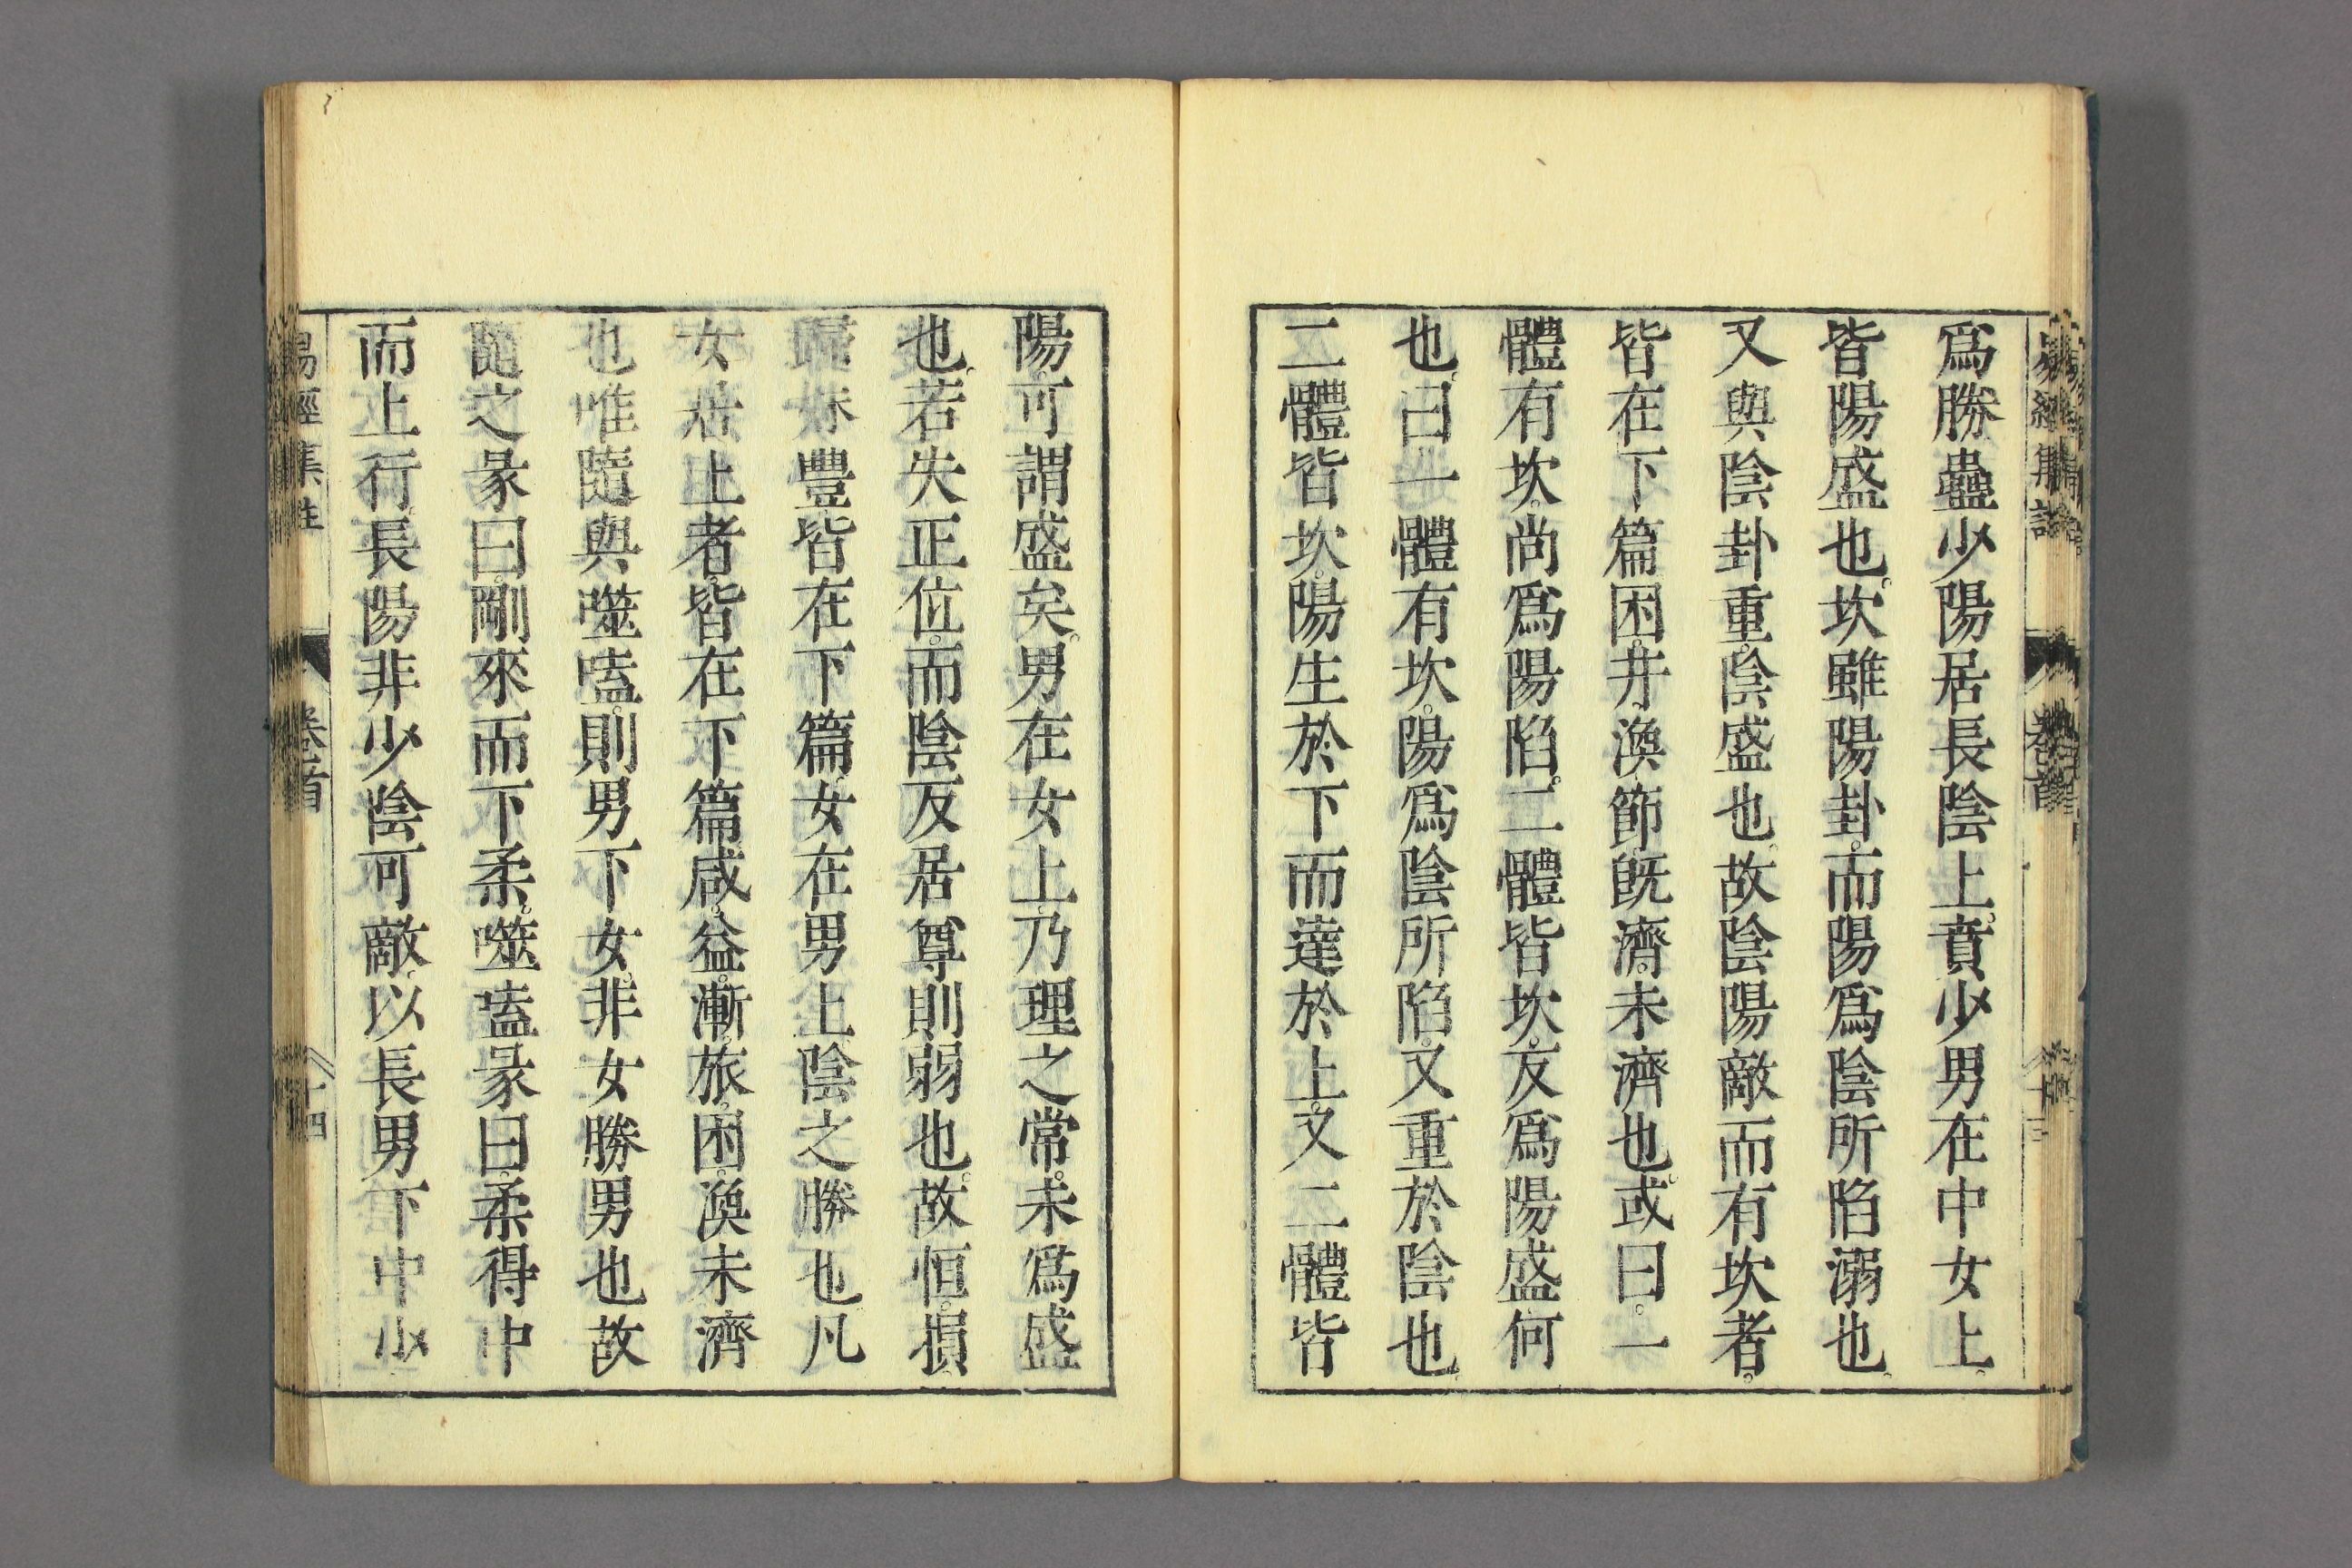 易經集註 卷首 十三
爲勝蠱少陽居長陰上。賁少男在中女上。
皆陽盛也。坎雖陽卦。而陽爲陰所陷溺也。
又與陰卦重。陰盛也。故陰陽敵而有坎者。
皆在下篇困。井、渙、節、旣濟、未濟也。或曰。一
體有坎。尚爲陽陷。二體皆坎。反爲陽盛何
也。曰一體有坎。陽爲陰所陷。又重於陰也。
二體皆坎。陽生於下而達於上。又二體皆
陽。可謂盛矣。男在女上。乃理之常。未爲盛
也。若失正位。而陰反居尊則弱也。故恒。損。
歸妹豐皆在下篇。女在男上。陰之勝也。凡
女居上者。皆在下篇。咸。益。漸。旅。困。渙未濟
也唯隨與噬嗑。則男下女。非女勝男也故
隨之彖曰。剛來而下柔。噬嗑彖曰。柔得中
而上行。長陽非少陰可敵。以長男下中少
易經集註 卷首 十四